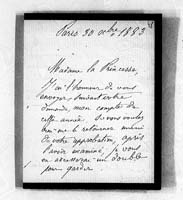 Paris 30 8bre 1883
Madame la Princesse,
J'ai l'honneur de vous
envoyer suivant votre
demande, mon compte de
cette année. Si vous voulez
bien me le retourner muni
de votre approbation, après
l'avoir examiné, je vous
en adresserai un double
pour garder